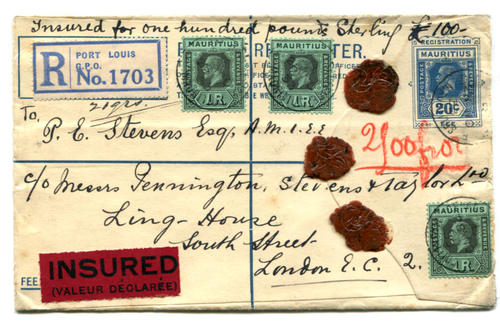 Insured for one hundred pounds Sterling £100-
R
PORT LOUIS
G.P.O.
No. 1703
MAURITIUS
1R.
MAURITIUS
1R.
REGISTRATION
MAURITIUS
POSTAGE
20c
21grs.
To,
P. E. Stevens Esq, A.M.I.E.E
200 fr or
c/o Messrs Pennington, Stevens & Taylor
Ling-House
South Street
London E.C. 2.
MAURITIUS
1R.
INSURED
(VALEUR DÉCLARÉE)
FEE